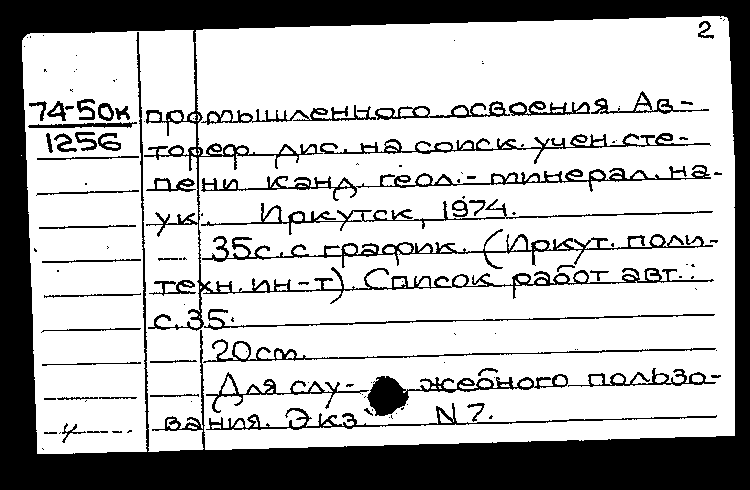 2
74-50к промышленного освоения. Ав-
1256 тореф. дис. на соиск. учен. сте-
пени канд. геол.-минерал. на-
ук. Иркутск, 1974.
35с. с график. (Иркут. поли-
техн. ин-т). Список работ авт.:
с.35.
20см.
Для слу- жебного пользо-
вания. Экз. N 7.